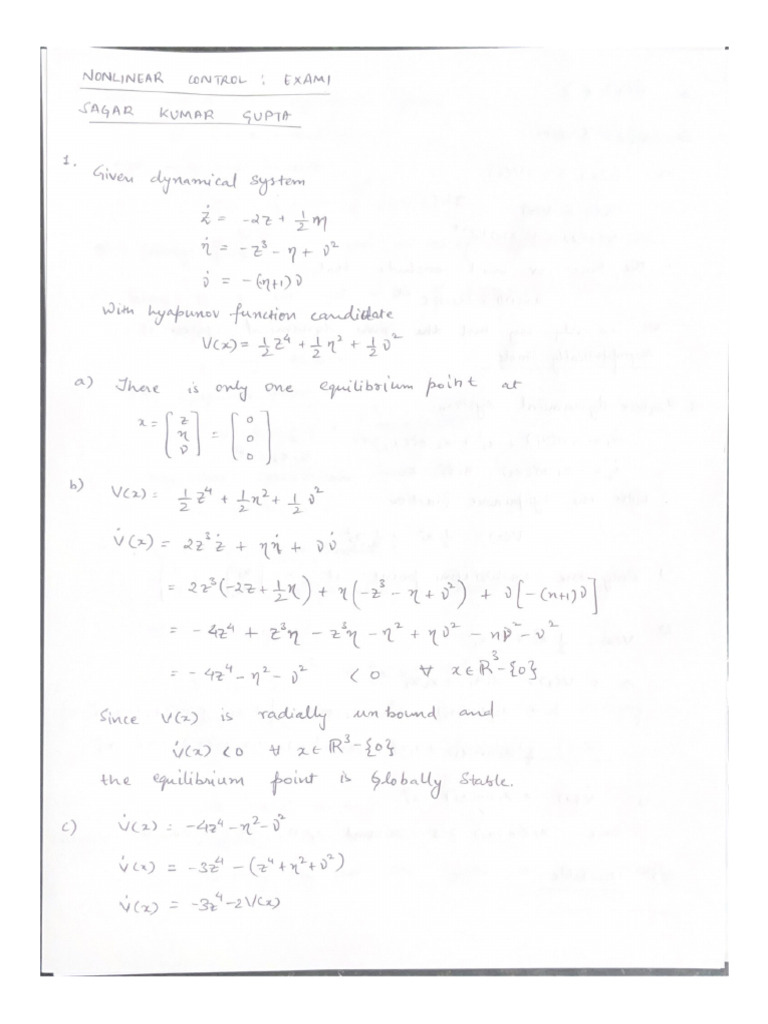 NONLINEAR CONTROL : EXAM 1
SAGAR KUMAR GUPTA
1. Given dynamical system
ż = -2z + 1/2 η
η̇ = -z³ - η + υ²
υ̇ = -(η+1)υ
With lyapunov function candidate
V(x) = 1/2 z⁴ + 1/2 η² + 1/2 υ²
a) There is only one equilibrium point at
x = [z η υ] = [0 0 0]
b) V(x) = 1/2 z⁴ + 1/2 η² + 1/2 υ²
V̇(x) = 2z³ż + ηη̇ + υυ̇
= 2z³(-2z + 1/2 η) + η(-z³ - η + υ²) + υ[-(η+1)υ]
= -4z⁴ + z³η - z³η - η² + ηυ² - ηυ² - υ²
= -4z⁴ - η² - υ² < 0 ∀ x ∈ ℝ³-{0}
Since V(x) is radially unbound and
V̇(x) < 0 ∀ x ∈ ℝ³-{0}
the equilibrium point is Globally Stable.
c) V̇(x) = -4z⁴ - η² - υ²
V̇(x) = -3z⁴ - (z⁴ + η² + υ²)
V̇(x) = -3z⁴ - 2V(x)